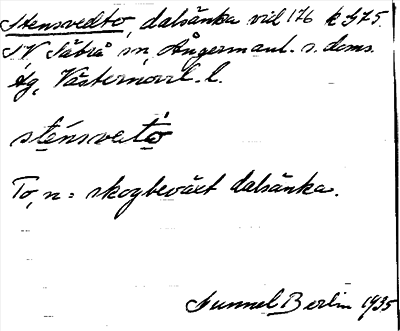 Stensvedto, dalsänka vid 176 k 575.
Säbrå sn, Ångermanl. s. doms.
Väster norrl. l.
sténsvetò
To, n = skogbeväxt dalsänka.
Gunnel Berlin 1935